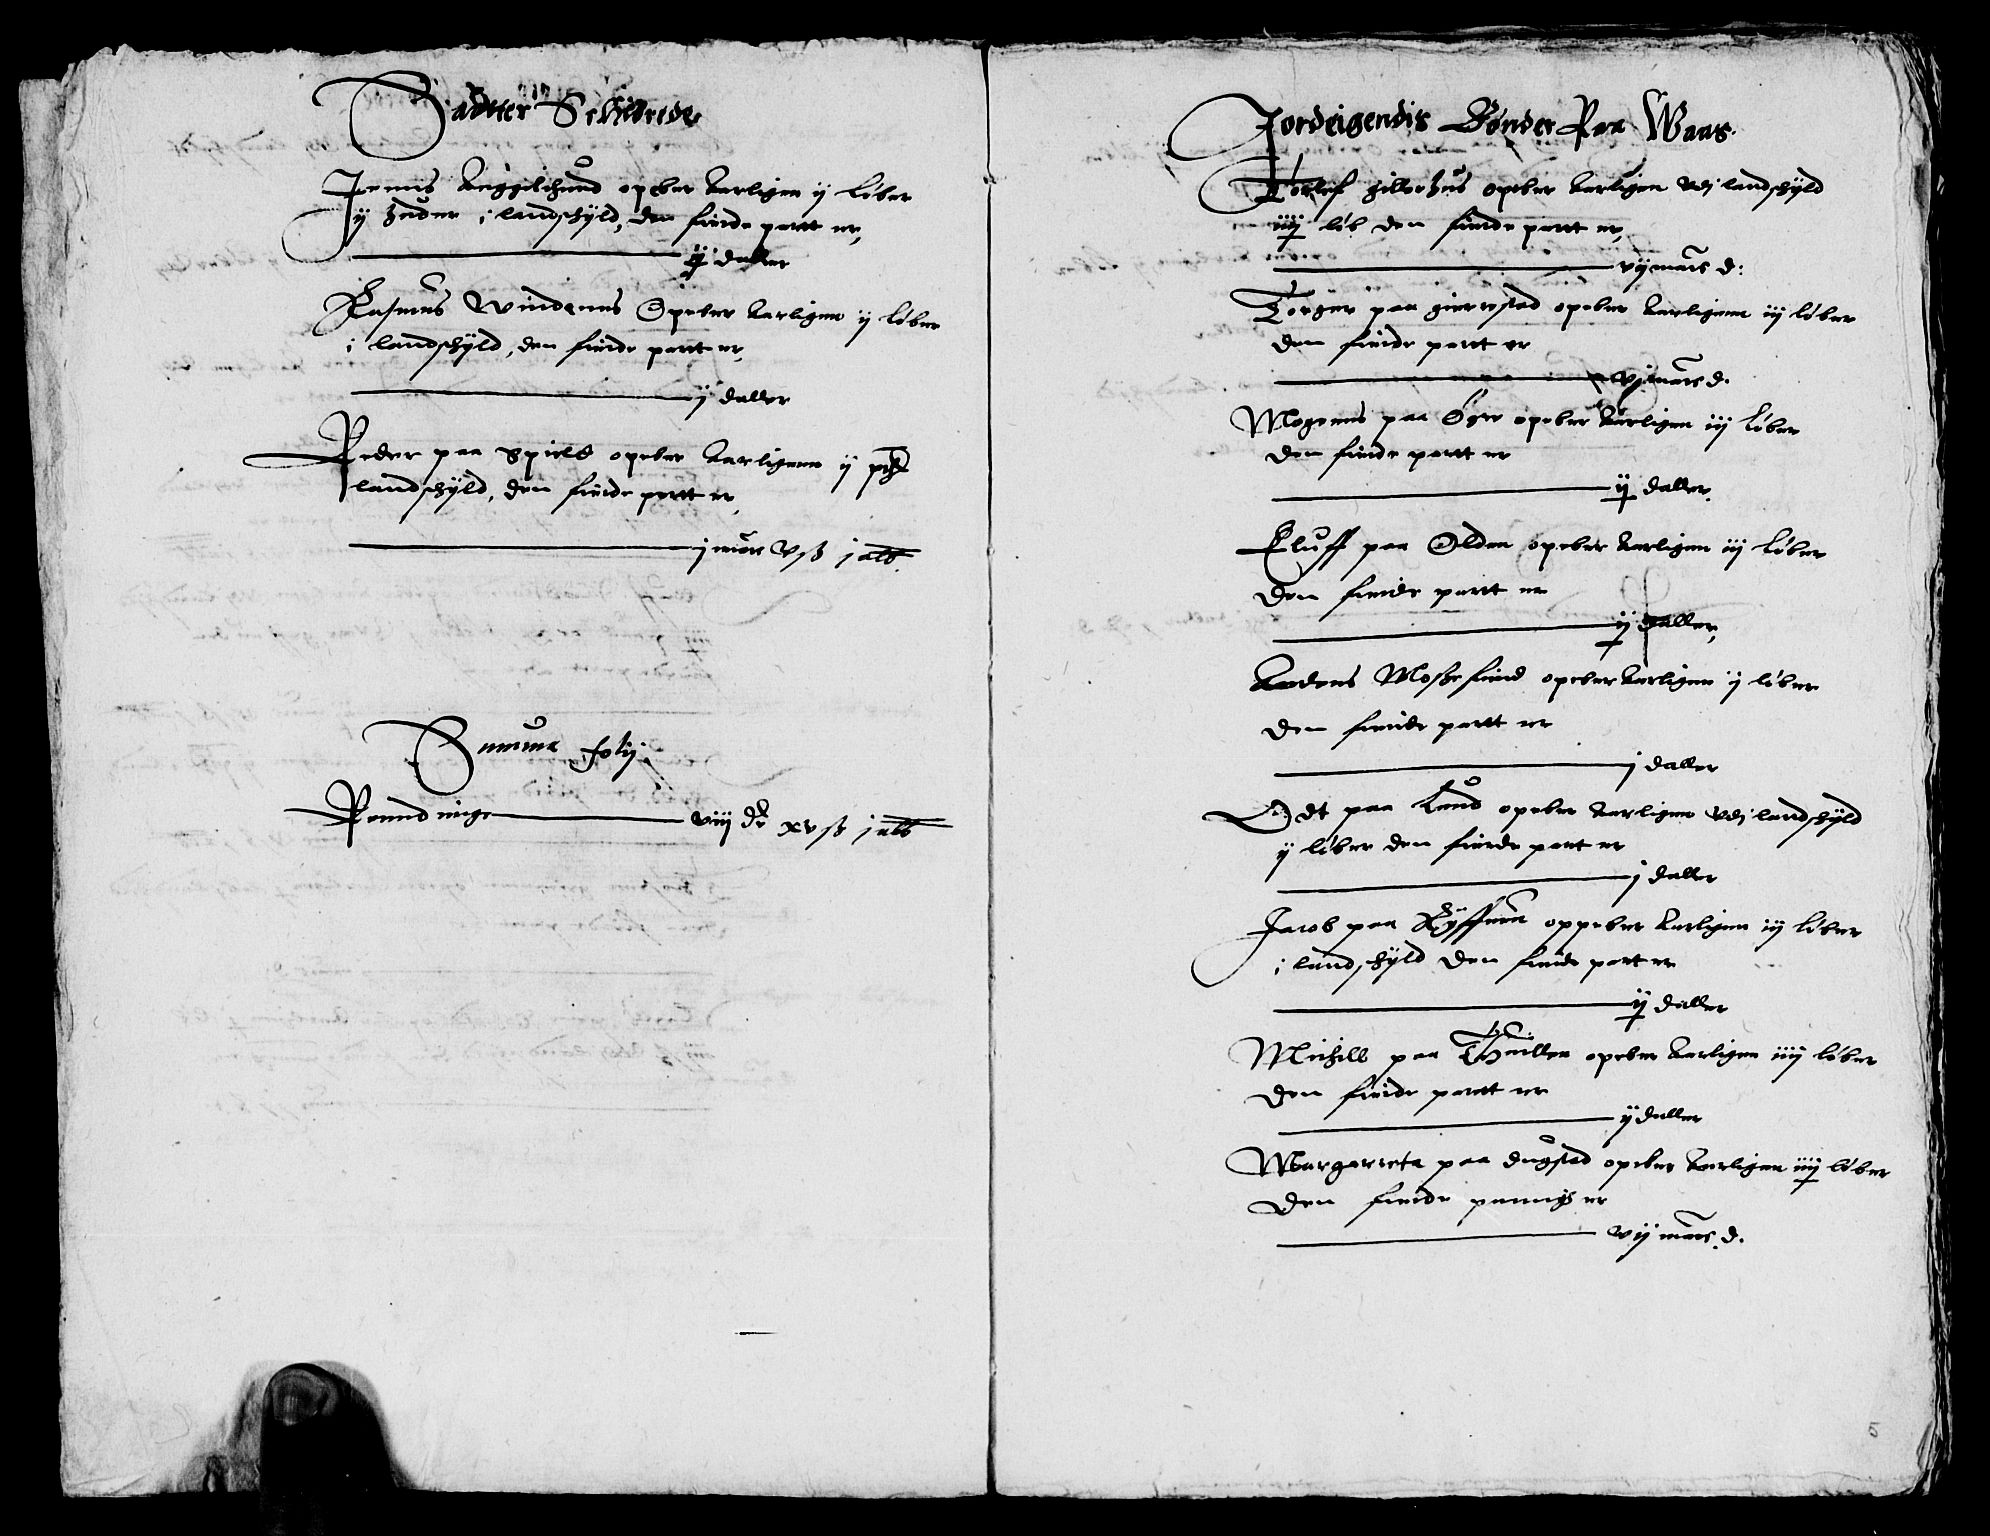 Sadtter Schibrede
Jenns opeber aarligen ij løber
ij huder i landschyld, den fierde partt er,
ij daller
Rasmus Windenns Opeber aarligen ij løber
i landschyld, den fierde partt er,
ij daller
Peder paa opeber aarligenn ij
landschyld, den fierde partt er,
j mørc vß j alb.
Summa folij
Penndinge viij dr xvß j alb
Jordeigendis Bønder Paa Waas
Torlef opeber aarligen vdj landschyld
iiij løb den fierde partt er,
vij marc d:
Torger paa gierrestad opeber aarligenn iij løber
den fierde partt er
vj marc d.
Mogenns paa opeber aarligen iij løber
den fierde partt er
ij daller.
Eluff paa Olden opeber aarligen iij løber
den fierde partt er
ij daller,
Andens Moßefind opeber aarligen ij løber
den fierde partt er
j daller
Odt paa Lund opeber aarligenn vdj landschyld
ij løber den fierde part er
j daller
Jacob paa oppeber aarligen iij løber
i landschyld den fierde part er
ij daller
Michell paa opeber aarligen iiij løber
den fierde partt er
ij daller
Margarreta paa dugstad opeber aarligen iiij løber
den fierde er
vij marc d.
5